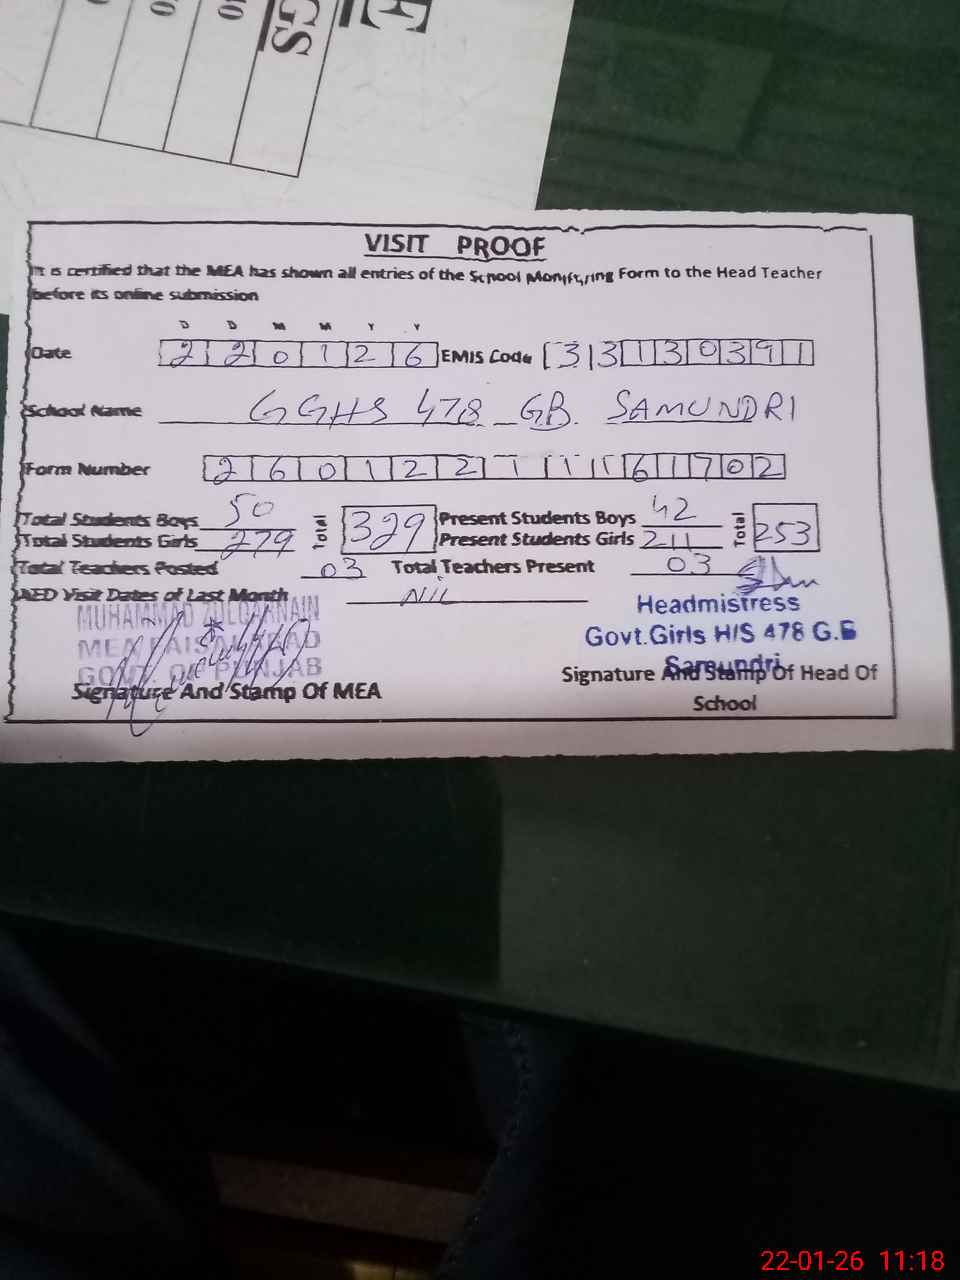 GS
VISIT PROOF
It is certified that the MEA has shown all entries of the School Monitoring Form to the Head Teacher
before its online submission
D D M M Y Y
Date 220126 EMIS Code 33130391
School Name GGHS 478 GB. SAMUNDRI
Form Number 26012211161702
Total Students Boys 50 Total 329 Present Students Boys 42 Total 253
Total Students Girls 279 Present Students Girls 211
Total Teachers Posted 03 Total Teachers Present 03
AED Visit Dates of Last Month NIL
MUHAMMAD ZULQARNAIN
MEA FAISALABAD
GOVT. OF PUNJAB
Signature And Stamp Of MEA
Headmistress
Govt.Girls H/S 478 G.B
Samundri
Signature And Stamp Of Head Of
School
22-01-26 11:18